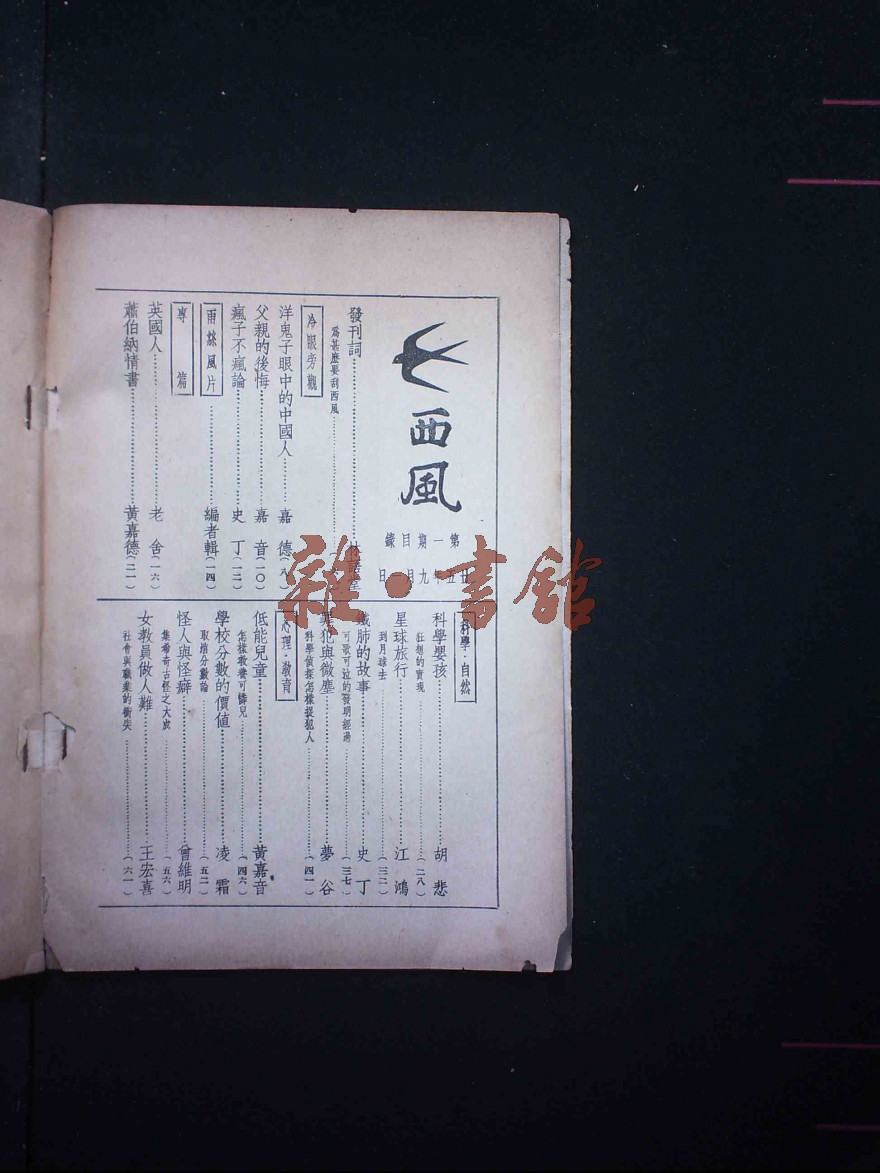 西風
第一期目錄
廿五年九月一日
發刊詞……林語堂
為甚麼要刮西風……
冷眼旁觀
洋鬼子眼中的中國人……嘉德(八)
父親的後悔……嘉音(一〇)
瘋子不瘋論……史丁(一二)
雨絲風片
……編者輯(一四)
專篇
英國人……老舍(一六)
蕭伯納情書……黃嘉德(二一)
科學·自然
科學嬰孩……胡悲
狂想的實現……(二八)
星球旅行……江鴻
到月球去……(三二)
鐵肺的故事……史丁
可歌可泣的發明經過……(三七)
罪犯與微塵……夢谷
科學偵探怎樣捉犯人……(四一)
心理·教育
低能兒童……黃嘉音
怎樣教養可憐兒……(四六)
學校分數的價值……凌霜
取消分數論……(五二)
怪人與怪癖……曾維明
集希奇古怪之大成……(五六)
女教員做人難……王宏喜
社會與職業的衝突……(六一)
雜·書館